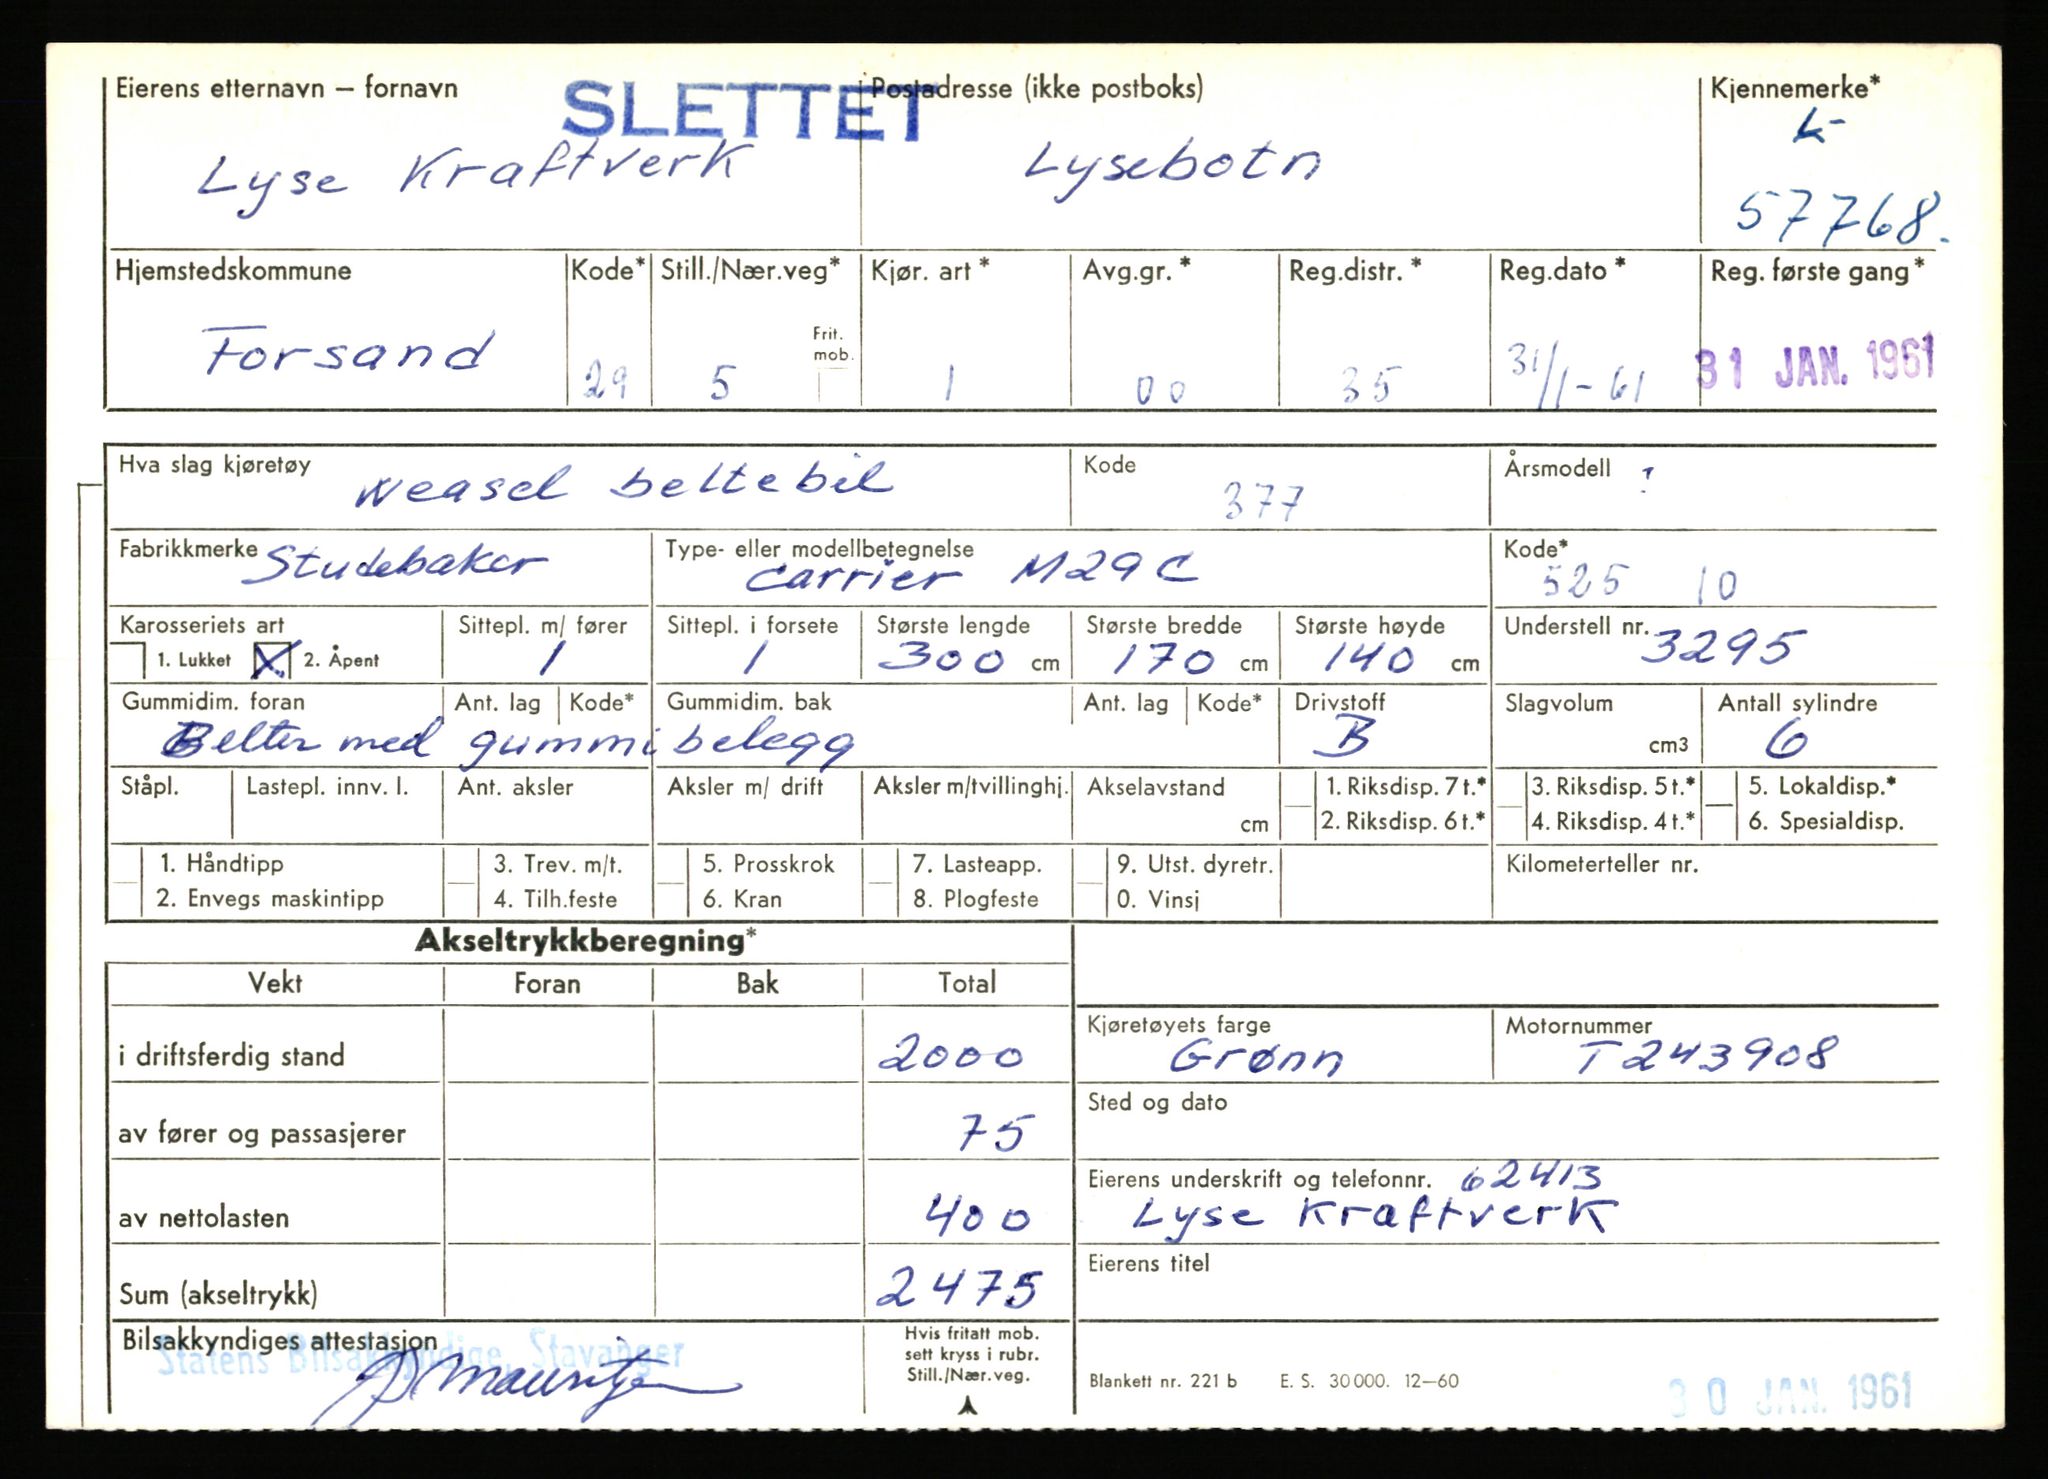 Eierens etternavn — fornavn SLETTET Postadresse (ikke postboks) Kjennemerke*
L-
Lyse Kraftverk Lysebotn
57768.
Hjemstedskommune Kode* Still./Nær.veg* Kjør. art * Avg.gr. * Reg.distr. * Reg.dato * Reg. første gang*
Frit. mob.
Forsand 29 5 1 00 35 31/1-61 31 JAN. 1961
Hva slag kjøretøy Weasel beltebil Kode 377 Årsmodell ?
Fabrikkmerke Studebaker Type- eller modellbetegnelse Carrier M29C Kode* 525 10
Karosseriets art Sittepl. m/ fører Sittepl. i forsete Største lengde Største bredde Største høyde Understell nr. 3295
1. Lukket X 2. Åpent 1 1 300 cm 170 cm 140 cm
Gummidim. foran Ant. lag Kode* Gummidim. bak Ant. lag Kode* Drivstoff Slagvolum Antall sylindre
Belter med gummibelegg B cm3 6
Ståpl. Lastepl. innv. l. Ant. aksler Aksler m/ drift Aksler m/tvillinghj. Akselavstand 1. Riksdisp. 7 t.* 3. Riksdisp. 5 t.* 5. Lokaldisp.*
cm 2. Riksdisp. 6 t.* 4. Riksdisp. 4 t.* 6. Spesialdisp.
1. Håndtipp 3. Trev. m/t. 5. Prosskrok 7. Lasteapp. 9. Utst. dyretr. Kilometerteller nr.
2. Envegs maskintipp 4. Tilh.feste 6. Kran 8. Plogfeste 0. Vinsj
Akseltrykkberegning*
Vekt Foran Bak Total
Kjøretøyets farge Motornummer
i driftsferdig stand 2000 Grønn T243908
Sted og dato
av fører og passasjerer 75
Eierens underskrift og telefonnr. 62413
av nettolasten 400 Lyse Kraftverk
Eierens titel
Sum (akseltrykk) 2475
Bilsakkyndiges attestasjon Hvis fritatt mob.
Statens Bilsakkyndige, Stavanger sett kryss i rubr.
Still./Nær.veg.
Blankett nr. 221 b E. S. 30 000. 12—60 30 JAN. 1961